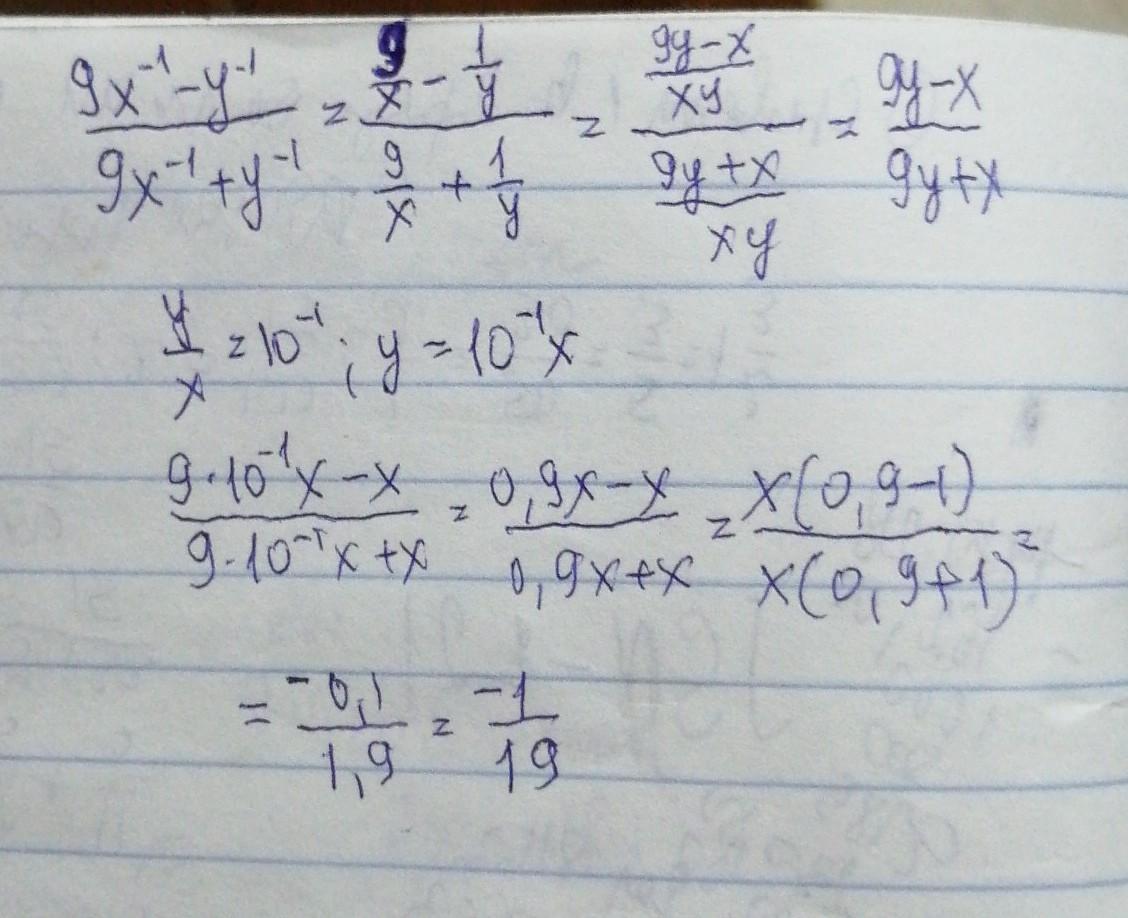 (9x⁻¹ − y⁻¹)/(9x⁻¹ + y⁻¹) = (9/x − 1/y)/(9/x + 1/y) = ((9y−x)/xy)/((9y+x)/xy) = (9y−x)/(9y+x)
y/x = 10⁻¹; y = 10⁻¹x
(9·10⁻¹x − x)/(9·10⁻¹x + x) = (0,9x − x)/(0,9x + x) = x(0,9−1)/x(0,9+1) =
= −0,1/1,9 = −1/19